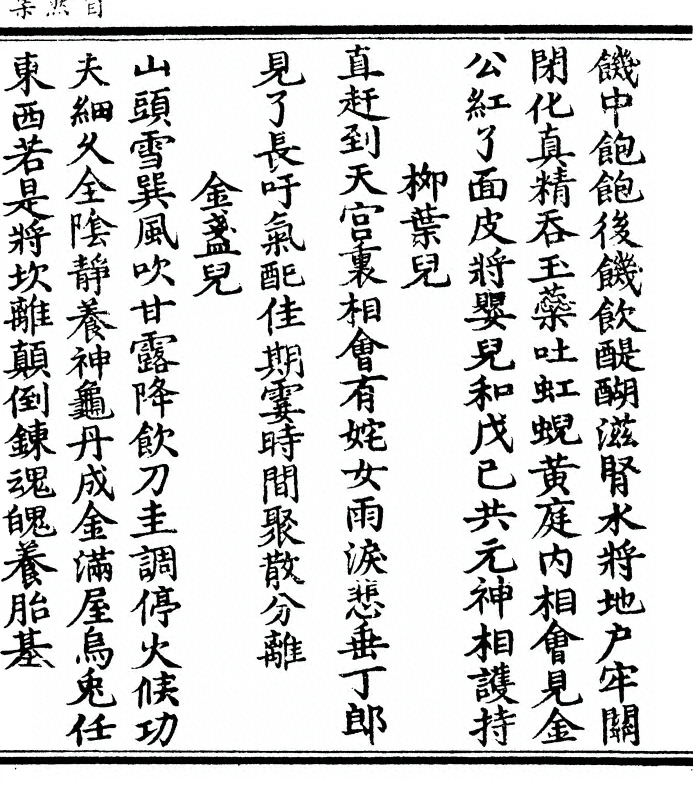 饑中飽飽後饑飲醍醐滋腎水將地户牢關
閉化真精吞玉蘂吐虹蜺黄庭内相會見金
公紅了面皮將嬰兒和戊己共元神相護持
柳葉兒
直赶到天宫裏相會有姹女雨淚悲垂丁郎
見了長吁氣配佳期霎時間聚散分離
金盞兒
山頭雪巽風吹甘露降飲刀圭調停火候功
夫細久全陰靜養神龜丹成金滿屋烏兔任
東西若是將坎離顛倒鍊魂魄養胎基